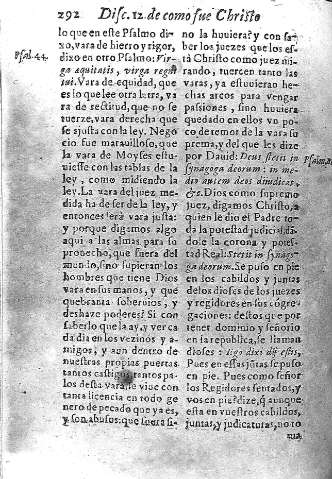 292 Disc. 12. de como fue Christo
lo que en este Psalmo di-
xo, vara de hierro y rigor,
dixo en otro Psalmo: Vir-
Psal. 44.
ga æquitatis, virga regni
tui. Vara de equidad, que
es lo que lee otra letra, va-
ra de rectitud, que no se
tuerze, vara derecha que
se ajusta con la ley. Nego
cio fue marauilloso, que
la vara de Moyses estu-
uiesse con las tablas de la
ley, como midiendo la
ley. La vara del juez, me-
dida ha de ser de la ley, y
entonces serà vara justa:
y porque digamos algo
aqui a las almas para su
prouecho, que fuera del
mundo, si no supieran los
hombres que tiene Dios
vara en sus manos, y que
quebranta soberuios, y
deshaze poderes? Si con
saberlo que la ay, y ver ca
da dia en los vezinos y a-
migos, y aun dentro de
nuestras propias puertas
tantos castigos, tantos pa-
los desta vara, se viue con
tanta licencia en todo ge
nero de pecado que ya es,
y son abusos: que fuera si
no la huuiera? y con sa-
ber los juezes que los es-
tà Christo como juez mi-
rando, tuercen tanto las
varas, ya estuuieran he-
chas arcos para vengar
passiones, sino huuiera
quedado en ellos vn po-
co de temor de la vara su
prema, y del que les dize
por Dauid: Deus stetit in
synagoga deorum: in me-
dio autem deos dijudicat,
&c. Dios como supremo
juez, digamos Christo, a
quien le dio el Padre to-
da la potestad judicial, dà-
dole la corona y potes-
tad Real: Stetit in synago
ga deorum. Se puso en pie
en los cabildos y juntas
de los dioses de los juezes
y regidores en sus cõgre-
gaciones: destos que por
tener dominio y señorio
en la republica, se llaman
dioses: Ego dixi dij estis,
Pues en essas jũtas se puso
en pie. Pues como señor
los Regidores sentados, y
vos en pie? dize, q̃ aunque
esta en vuestros cabildos,
juntas, y judicaturas, no to